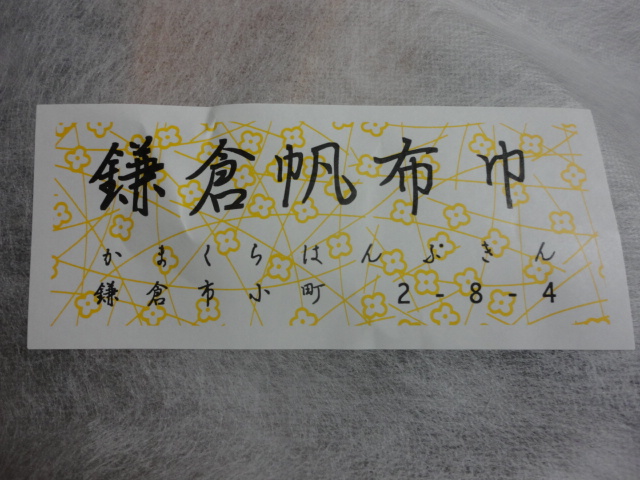 鎌倉帆布巾
かまくらはんぷきん
鎌倉市小町 2-8-4